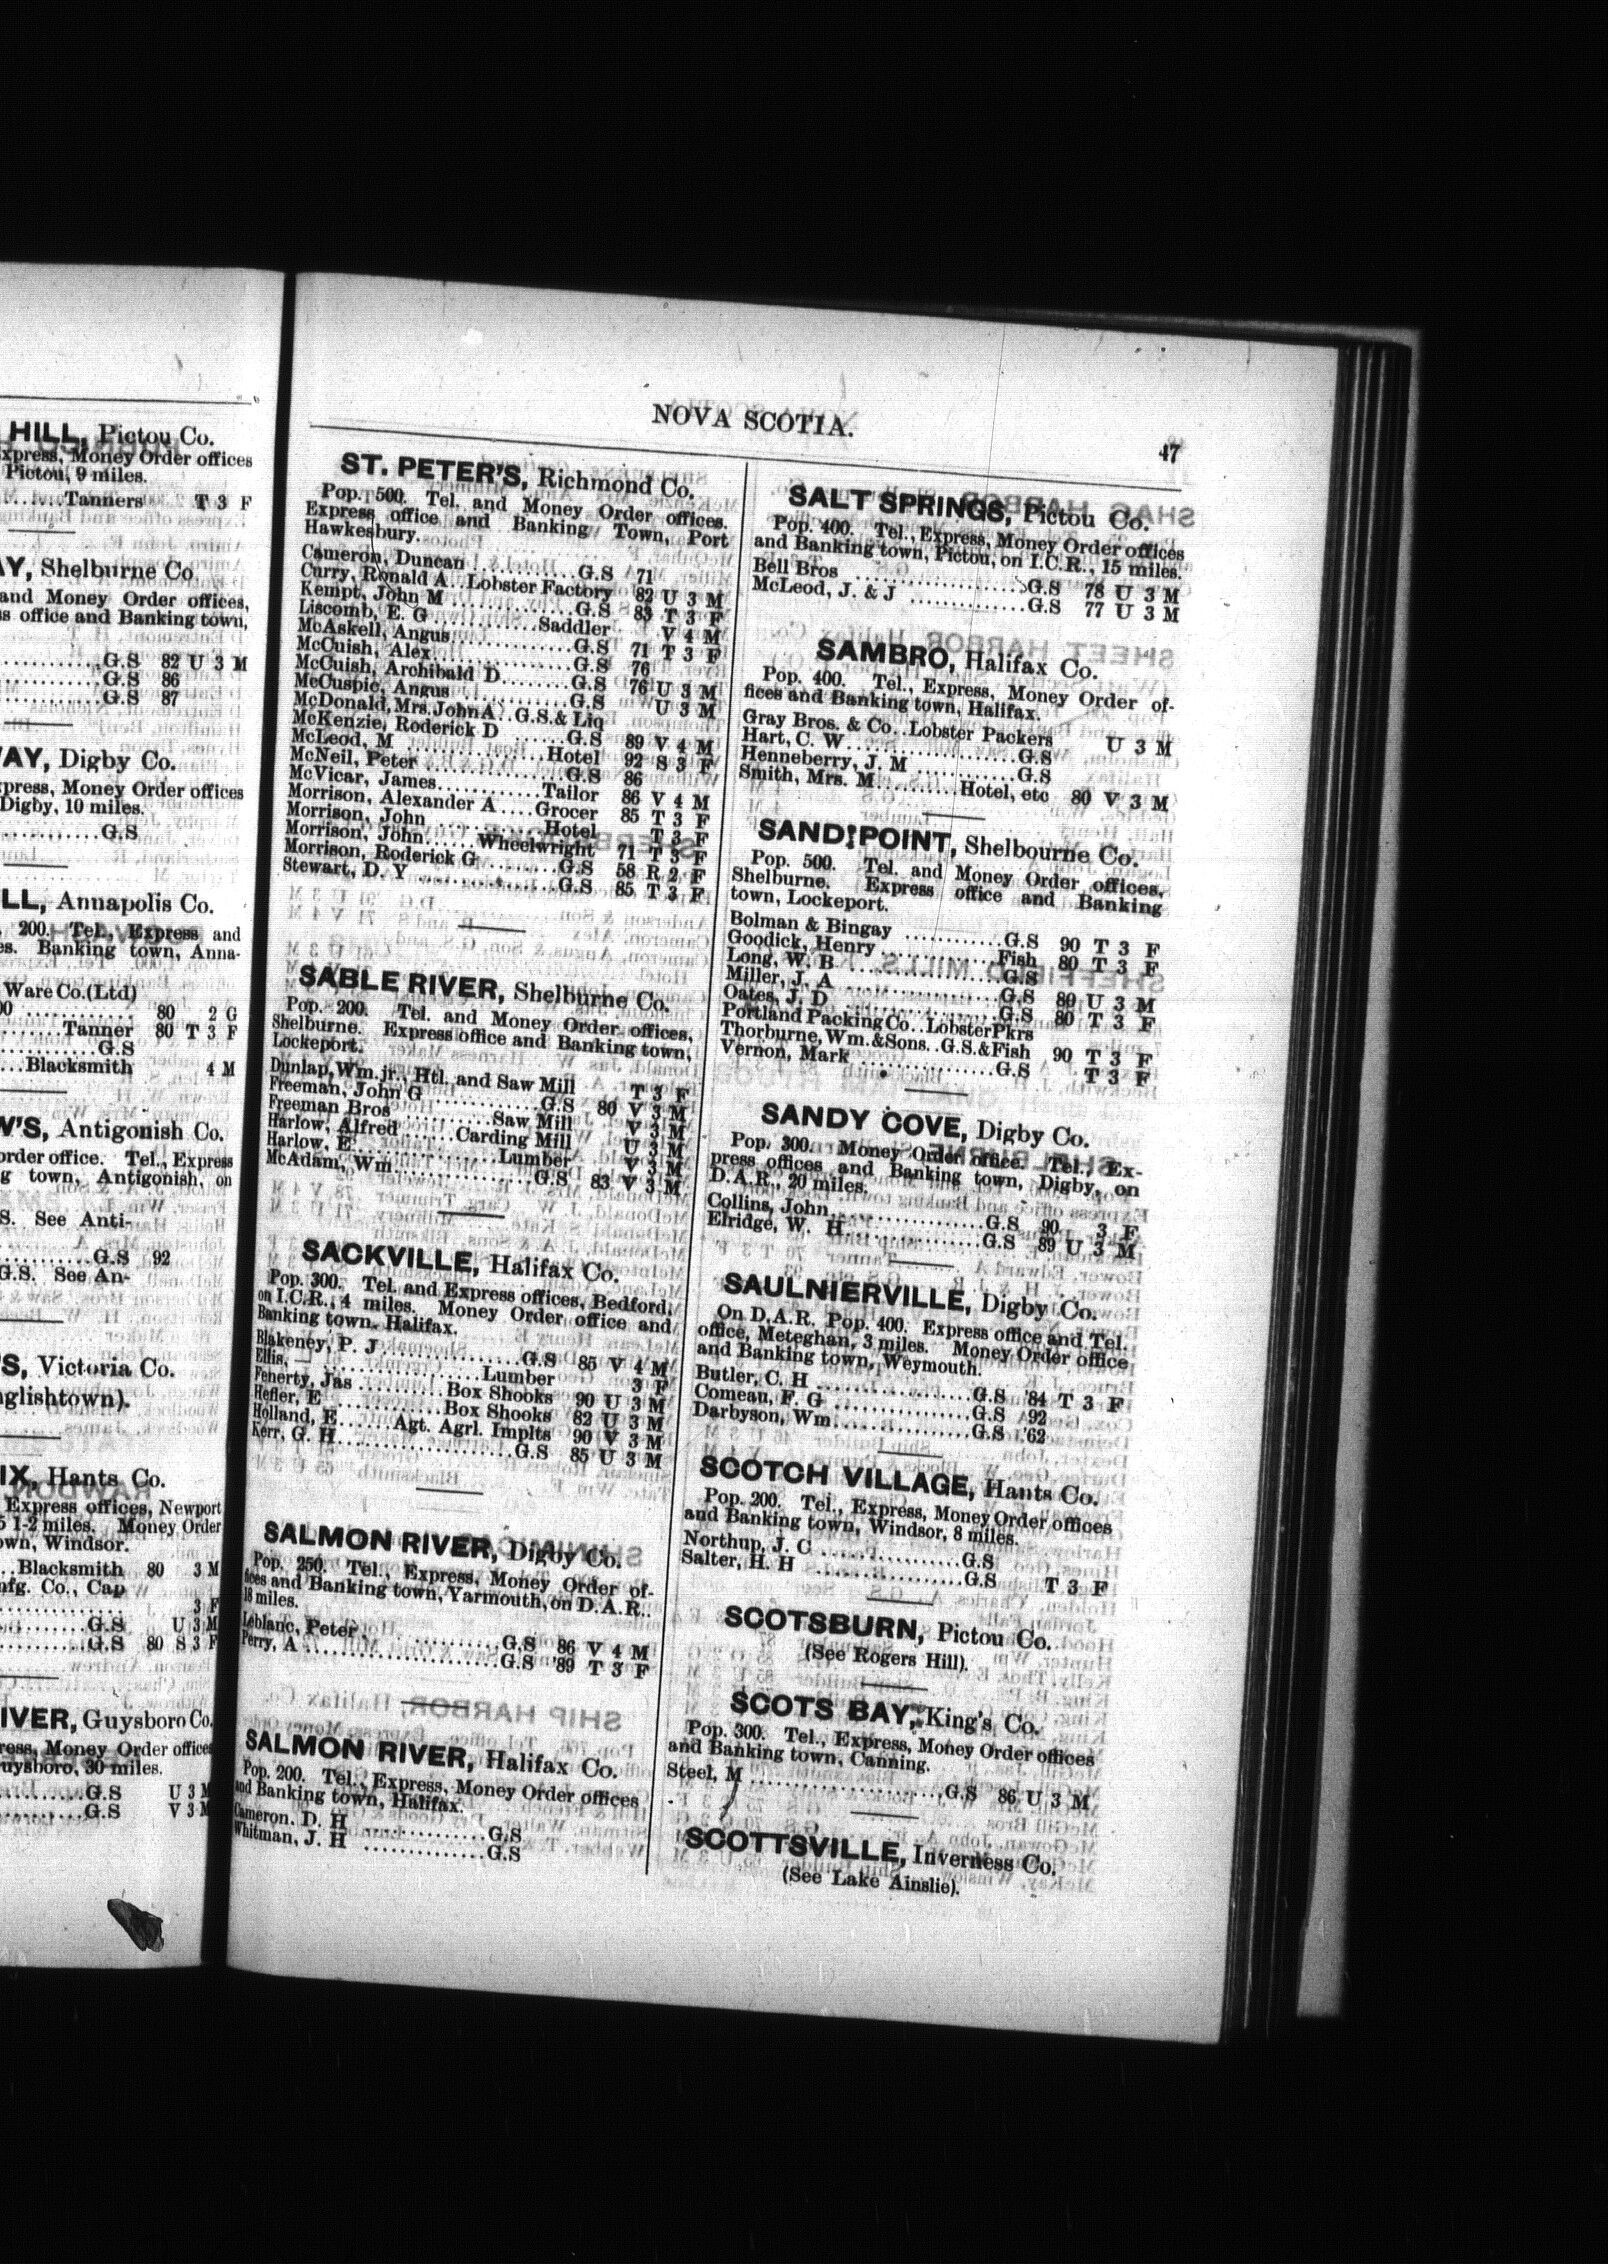 HILL, Pictou Co.
xpress, Money Order offices
Pictou, 9 miles.
Tanners T 3 F
AY, Shelburne Co
and Money Order offices,
ss office and Banking town,
G.S 82 U 3 M
G.S 86
G.S 87
WAY, Digby Co.
xpress, Money Order offices
Digby, 10 miles.
G.S
LL, Annapolis Co.
200. Tel., Express and
es. Banking town, Anna-
Ware Co.(Ltd)
80 2 G
Tanner 80 T 3 F
G.S
Blacksmith 4 M
W'S, Antigonish Co.
order office. Tel., Express
g town, Antigonish, on
S. See Anti-
G.S 92
G.S. See An-
S, Victoria Co.
nglishtown).
IX, Hants Co.
Express offices, Newport
5 1-2 miles. Money Order
own, Windsor.
Blacksmith 80 3 M
nfg. Co., Cap
3 F
G.S U 3 M
G.S 80 S 3 F
IVER, Guysboro Co.
ress, Money Order offices
uysboro, 30 miles.
G.S U 3 M
G.S V 3 M
NOVA SCOTIA.
47
ST. PETER'S, Richmond Co.
Pop. 500. Tel. and Money Order offices.
Express office and Banking Town, Port
Hawkesbury.
Cameron, Duncan G.S 71
Curry, Ronald A..Lobster Factory 82 U 3 M
Kempt, John M G.S 83 T 3 F
Liscomb, E. G Saddler V 4 M
McAskell, Angus G.S 71 T 3 F
McCuish, Alex G.S 76
McCuish, Archibald D G.S 76 U 3 M
McCuspic, Angus G.S U 3 M
McDonald, Mrs. John A..G.S.& Liq
McKenzie, Roderick D G.S 89 V 4 M
McLeod, M Hotel 92 S 3 F
McNeil, Peter G.S 86
McVicar, James Tailor 86 V 4 M
Morrison, Alexander A Grocer 85 T 3 F
Morrison, John Hotel T 3 F
Morrison, John Wheelwright 71 T 3 F
Morrison, Roderick G G.S 58 R 2 F
Stewart, D. Y G.S 85 T 3 F
SABLE RIVER, Shelburne Co.
Pop. 200. Tel. and Money Order offices,
Shelburne. Express office and Banking town,
Lockeport.
Dunlap, Wm. jr., Htl. and Saw Mill T 3 F
Freeman, John G G.S 80 V 3 M
Freeman Bros Saw Mill V 3 M
Harlow, Alfred Carding Mill U 3 M
Harlow, E Lumber V 3 M
McAdam, Wm G.S 83 V 3 M
SACKVILLE, Halifax Co.
Pop. 300. Tel. and Express offices, Bedford,
on I.C.R., 4 miles. Money Order office and
Banking town, Halifax.
Blakeney, P. J G.S 85 V 4 M
Ellis, — Lumber 3 F
Fenerty, Jas Box Shooks 90 U 3 M
Hefler, E Box Shooks 82 U 3 M
Holland, E Agt. Agrl. Implts 90 V 3 M
Kerr, G. H G.S 85 U 3 M
SALMON RIVER, Digby Co.
Pop. 250. Tel., Express, Money Order of-
fices and Banking town, Yarmouth, on D.A.R.,
18 miles.
Leblanc, Peter G.S 86 V 4 M
Perry, A G.S '89 T 3 F
SALMON RIVER, Halifax Co.
Pop. 200. Tel., Express, Money Order offices
and Banking town, Halifax.
Cameron, D. H G.S
Whitman, J. H G.S
SALT SPRINGS, Pictou Co.
Pop. 400. Tel., Express, Money Order offices
and Banking town, Pictou, on I.C.R., 15 miles.
Bell Bros G.S 78 U 3 M
McLeod, J. & J G.S 77 U 3 M
SAMBRO, Halifax Co.
Pop. 400. Tel., Express, Money Order of-
fices and Banking town, Halifax.
Gray Bros. & Co..Lobster Packers U 3 M
Hart, C. W G.S
Henneberry, J. M G.S
Smith, Mrs. M Hotel, etc 80 V 3 M
SAND POINT, Shelbourne Co.
Pop. 500. Tel. and Money Order offices,
Shelburne. Express office and Banking
town, Lockeport.
Bolman & Bingay G.S 90 T 3 F
Goodick, Henry Fish 80 T 3 F
Long, W. B G.S
Miller, J. A G.S 80 U 3 M
Oates, J. D G.S 80 T 3 F
Portland Packing Co..Lobster Pkrs
Thorburne, Wm. & Sons..G.S.& Fish 90 T 3 F
Vernon, Mark G.S T 3 F
SANDY COVE, Digby Co.
Pop. 300. Money Order office. Tel., Ex-
press offices and Banking town, Digby, on
D.A.R., 20 miles.
Collins, John G.S 90 3 F
Elridge, W. H G.S 89 U 3 M
SAULNIERVILLE, Digby Co.
On D.A.R. Pop. 400. Express office and Tel.
office, Meteghan, 3 miles. Money Order office
and Banking town, Weymouth.
Butler, C. H G.S '84 T 3 F
Comeau, F. G G.S 92
Darbyson, Wm G.S '62
SCOTCH VILLAGE, Hants Co.
Pop. 200. Tel., Express, Money Order offices
and Banking town, Windsor, 8 miles.
Northup, J. C G.S
Salter, H. H G.S T 3 F
SCOTSBURN, Pictou Co.
(See Rogers Hill).
SCOTS BAY, King's Co.
Pop. 300. Tel., Express, Money Order offices
and Banking town, Canning.
Steel, M G.S 86 U 3 M
SCOTTSVILLE, Inverness Co.
(See Lake Ainslie).